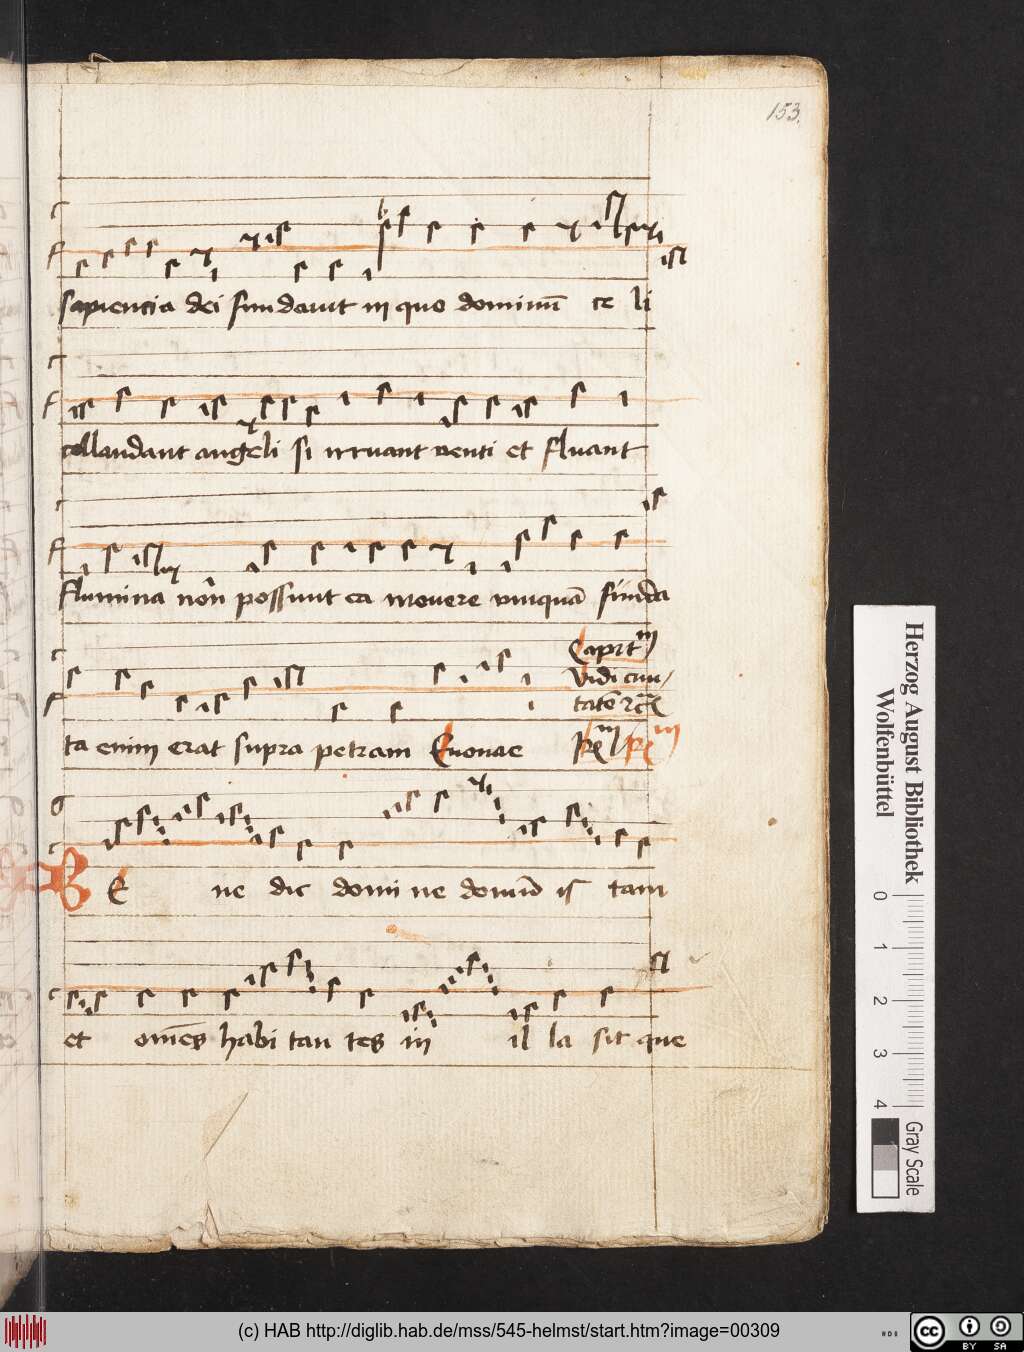 153.
sapiencia dei fundauit in quo dominū ce li
collaudant angeli si irruant venti et fluant
flumina non possunt ea mouere vniquā funda
Capitm
vidi ciui,
ta enim erat supra petram Euouae
BE ne dic domi ne domū is tam
et om̄es habi tan tes in il la sit que
Herzog August Bibliothek
Wolfenbüttel
0 1 2 3 4
Gray Scale
(c) HAB http://diglib.hab.de/mss/545-helmst/start.htm?image=00309
cc BY SA